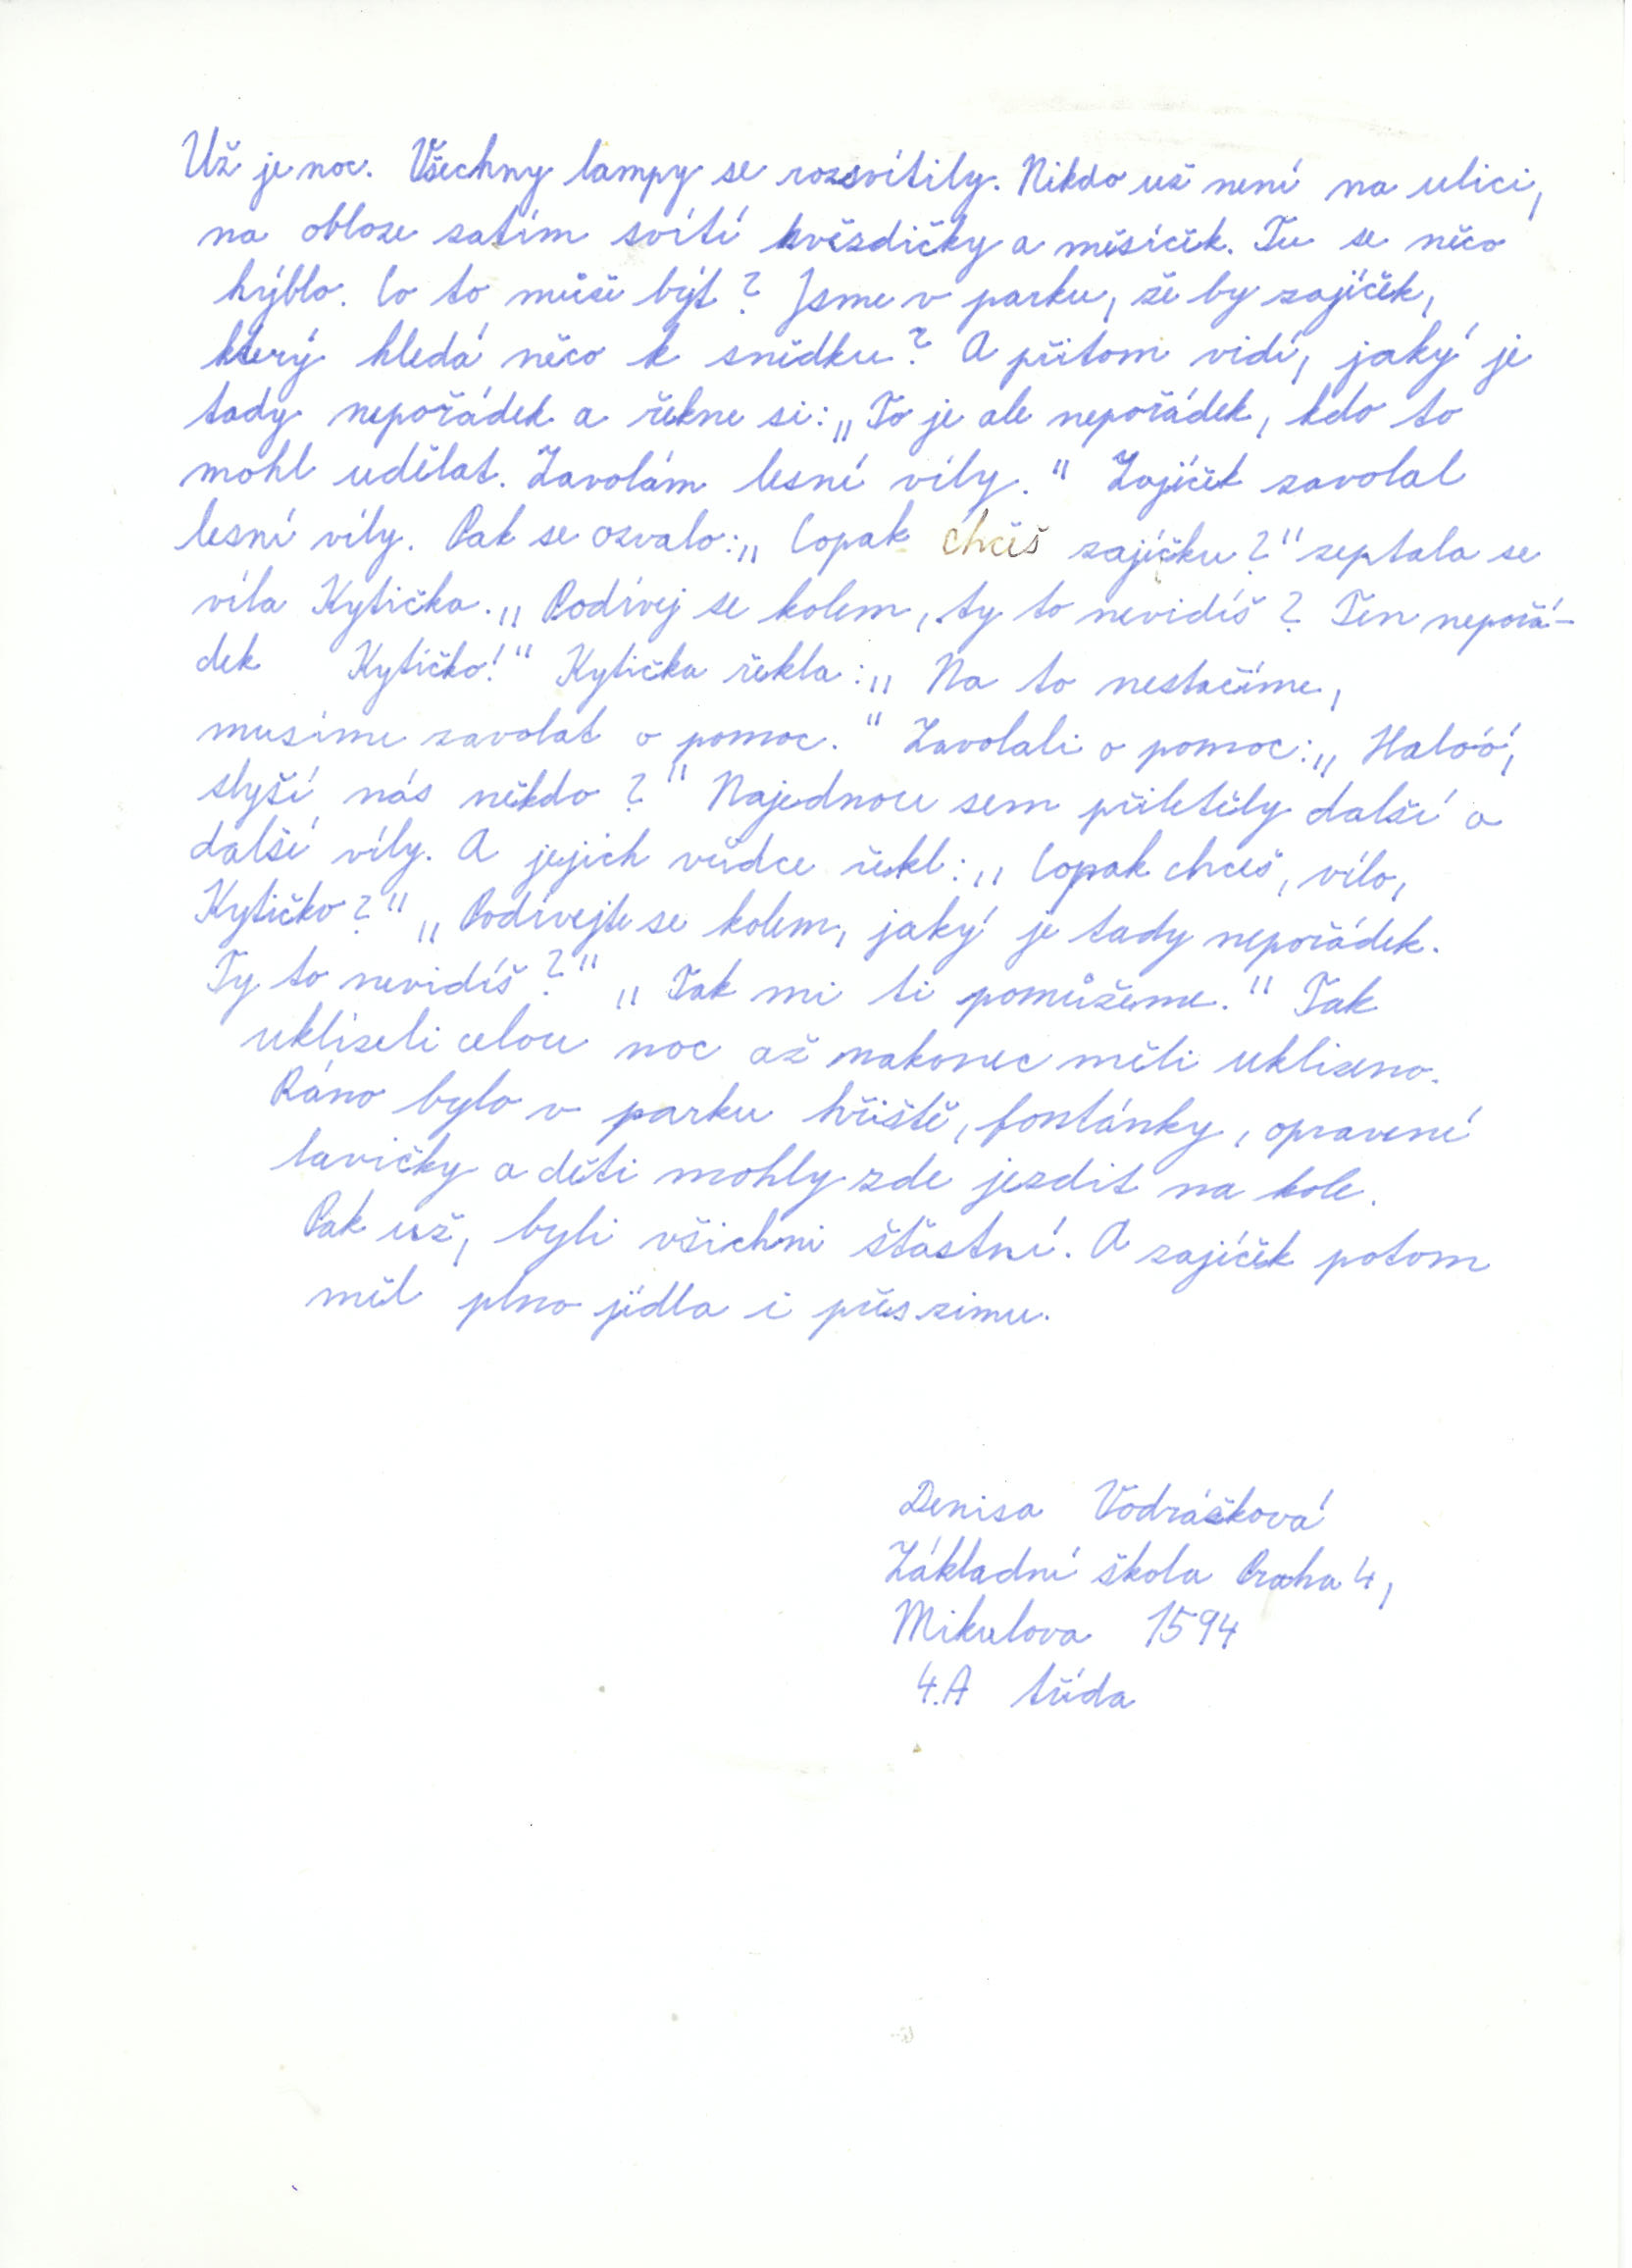 Už je noc. Všechny lampy se rozsvítily. Nikdo už není na ulici,
na obloze zatím svítí hvězdičky a měsíček. Tu se něco
hýblo. Co to může být? Jsme v parku, že by zajíček,
který hledá něco k snědku? A přitom vidí, jaký je
tady nepořádek a řekne si: „To je ale nepořádek, kdo to
mohl udělat. Zavolám lesní víly." Zajíček zavolal
lesní víly. Pak se ozvalo: „Copak chceš zajíčku?" zeptala se
víla Kytička. „Podívej se kolem, ty to nevidíš? Ten nepořá-
dek Kytičko!" Kytička řekla: „Na to nestačíme,
musíme zavolat o pomoc." Zavolali o pomoc: „Halóó,
slyší nás někdo?" Najednou sem přiletěly další a
další víly. A jejich vůdce řekl: „Copak chceš, vílo,
Kytičko?" „Podívejte se kolem, jaký je tady nepořádek.
Ty to nevidíš?" „Tak mi ti pomůžeme." Tak
uklízeli celou noc až nakonec měli uklizeno.
Ráno bylo v parku hřiště, fontánky, opravené
lavičky a děti mohly zde jezdit na kole.
Pak už, byli všichni šťastní. A zajíček potom
měl plno jídla i přes zimu.
Denisa Vodrážková
Základní škola Praha 4,
Mikulova 1594
4.A třída